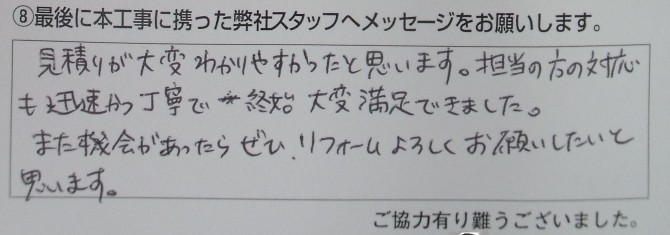 ⑧最後に本工事に携った弊社スタッフへメッセージをお願いします。
見積りが大変わかりやすかったと思います。担当の方の対応
も迅速かつ丁寧で終始大変満足できました。
また機会があったらぜひ、リフォームよろしくお願いしたいと
思います。
ご協力有り難うございました。